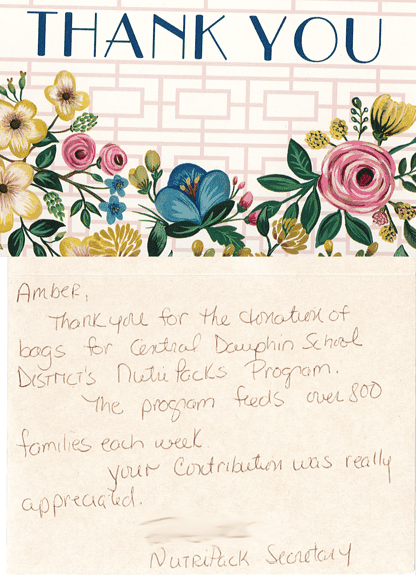 THANK YOU
Amber,
Thank you for the donation of
bags for Central Dauphin School
District's NutriPacks Program.
The program feeds over 800
families each week
your Contribution was really
appreciated.
NutriPack Secretary